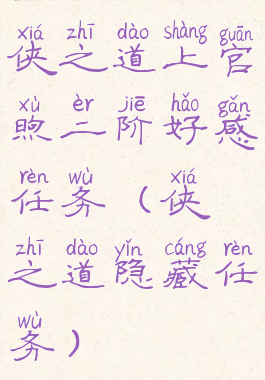 xiá zhī dào shàng guān
侠之道上官
xù èr jiē hǎo gǎn
煦二阶好感
rèn wù xiá
任务（侠
zhī dào yǐn cáng rèn
之道隐藏任
wù
务）